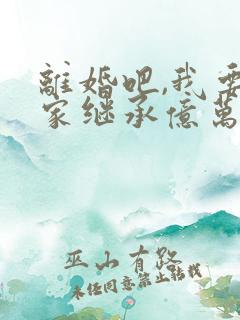 離婚吧,我要
家继承億萬
巫山有路
未任同意禁止转载